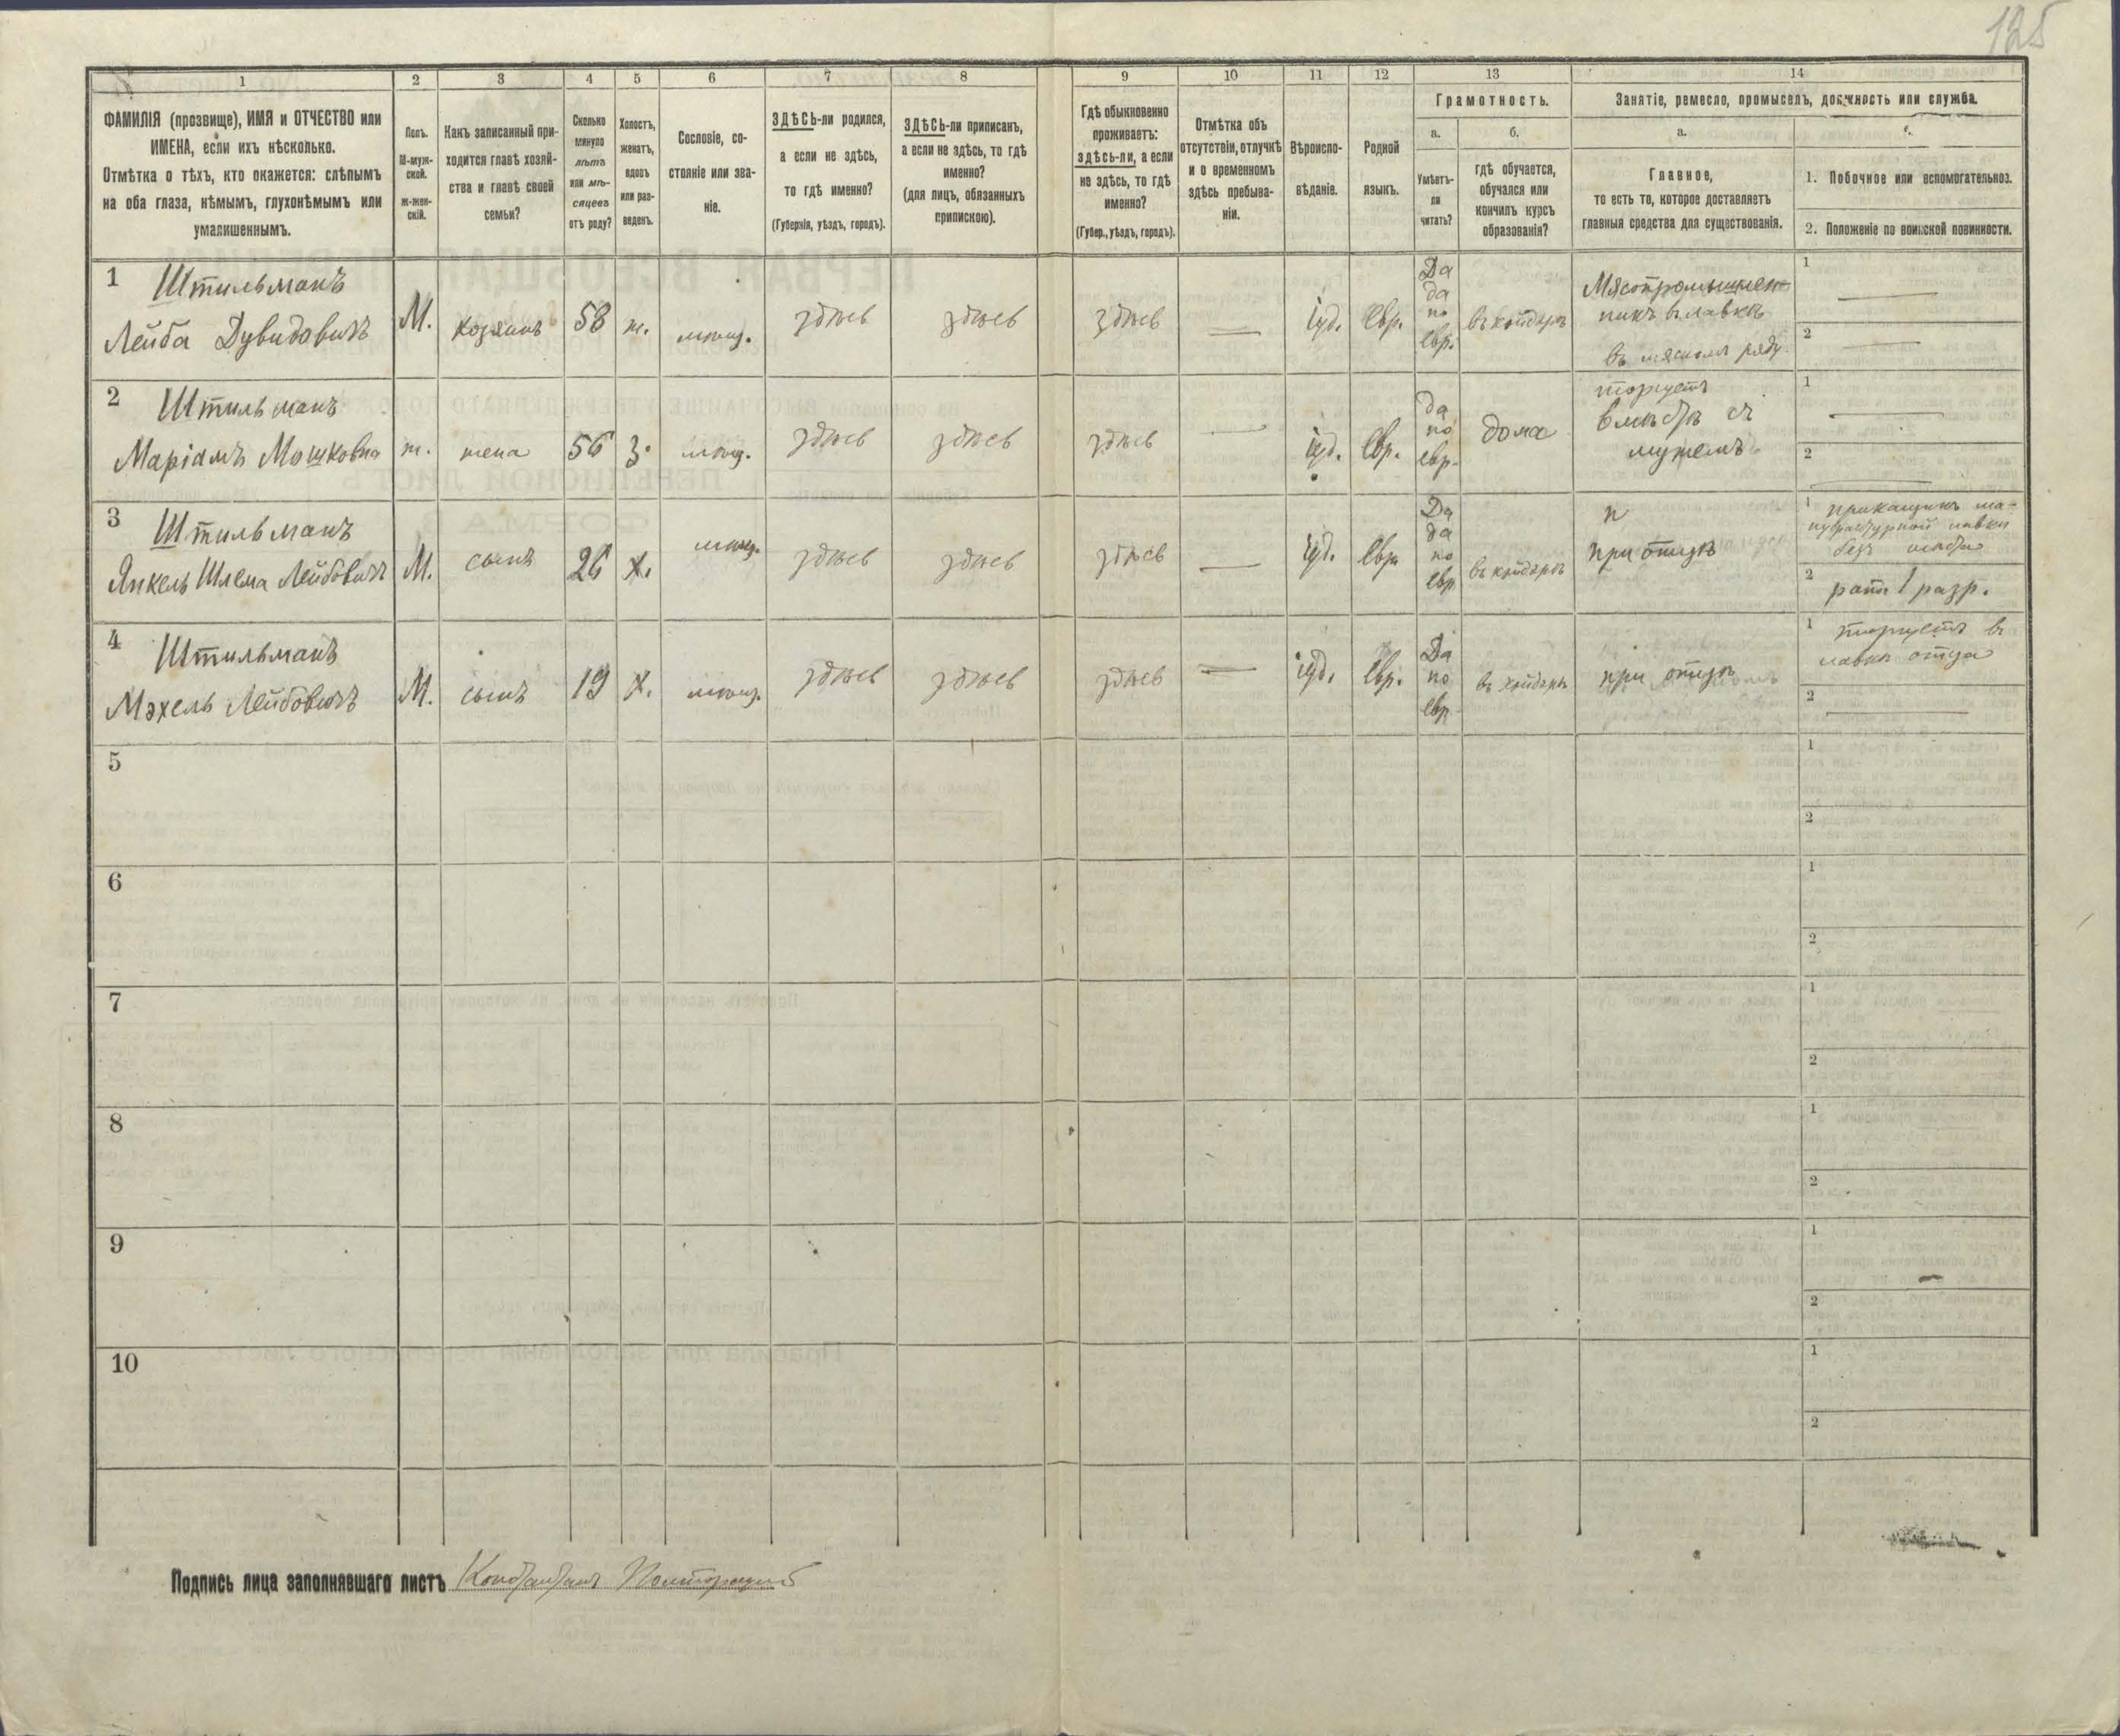 125
1 2 3 4 5 6 7 8 9 10 11 12 13 14
ФАМИЛІЯ (прозвище), ИМЯ и ОТЧЕСТВО или
ИМЕНА, если ихъ нѣсколько.
Отмѣтка о тѣхъ, кто окажется: слѣпымъ
на оба глаза, нѣмымъ, глухонѣмымъ или
умалишеннымъ.
Полъ.
М-муж-
ской.
Ж-жен-
скій.
Какъ записанный при-
ходится главѣ хозяй-
ства и главѣ своей
семьи?
Сколько
минуло
лѣтъ
или мѣ-
сяцевъ
отъ роду?
Холостъ,
женатъ,
вдовъ
или раз-
веденъ.
Сословіе, со-
стояніе или зва-
ніе.
ЗДѢСЬ-ли родился,
а если не здѣсь,
то гдѣ именно?
(Губернія, уѣздъ, городъ).
ЗДѢСЬ-ли приписанъ,
а если не здѣсь, то гдѣ
именно?
(для лицъ, обязанныхъ
припискою).
Гдѣ обыкновенно
проживаетъ:
здѣсь-ли, а если
не здѣсь, то гдѣ
именно?
(Губер., уѣздъ, городъ).
Отмѣтка объ
отсутствіи, отлучкѣ
и о временномъ
здѣсь пребыва-
ніи.
Вѣроиспо-
вѣданіе.
Родной
языкъ.
Грамотность.
а.
Умѣетъ-
ли
читать?
б.
гдѣ обучается,
обучался или
кончилъ курсъ
образованія?
Занятіе, ремесло, промыселъ, должность или служба.
а.
Главное,
то есть то, которое доставляетъ
главныя средства для существованія.
1. Побочное или вспомогательное.
2. Положеніе по воинской повинности.
1 Штильманъ
Лейба Дувидовичъ
М.
хозяинъ
58
ж.
мѣщ.
здѣсь
здѣсь
здѣсь
—
іуд.
евр.
Да
да
по
евр.
въ хейдерѣ
Мясопромышлен-
никъ въ лавкѣ
въ мясномъ ряду
1 —
2 —
2 Штильманъ
Маріамъ Мошковна
ж.
жена
56
з.
мѣщ.
здѣсь
здѣсь
здѣсь
—
іуд.
евр.
да
по
евр.
дома
торгуетъ
вмѣстѣ съ
мужемъ
1 —
2 —
3 Штильманъ
Янкель Шлема Лейбовичъ
М.
сынъ
26
х.
мѣщ.
здѣсь
здѣсь
здѣсь
—
іуд.
евр.
Да
да
по
евр.
въ хейдерѣ
п
при отцѣ
1 прикащикъ ма-
нуфактурной лавки
безъ мѣста
2 ратн 1 разр.
4 Штильманъ
Мэхель Лейбовичъ
М.
сынъ
19
х.
мѣщ.
здѣсь
здѣсь
здѣсь
—
іуд.
евр.
Да
по
евр.
въ хейдерѣ
при отцѣ
1 торгуетъ въ
лавкѣ отца
2 —
5 1
2
6 1
2
7 1
2
8 1
2
9 1
2
10 1
2
Подпись лица заполнявшаго листъ Константинъ